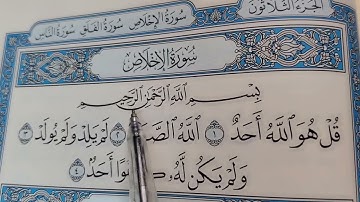 الجزء الثلاثون
سورة الإخلاص سورة الفلق سورة الناس
سُورَةُ الإِخْلَاصِ
بِسْمِ اللَّهِ الرَّحْمَٰنِ الرَّحِيمِ
قُلْ هُوَ اللَّهُ أَحَدٌ ١ اللَّهُ الصَّ ٢ لَمْ يَلِدْ وَلَمْ يُولَدْ ٣
وَلَمْ يَكُن لَّهُ أَحَدٌ ٤